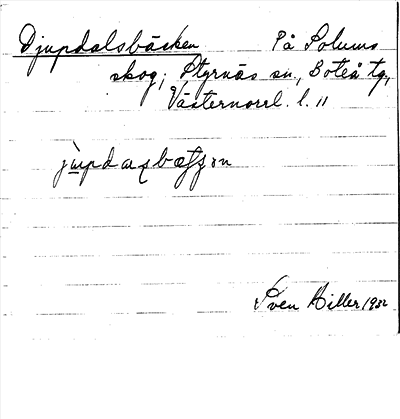 Djupdalsbäcken På Solums
skog; Styrnäs sn, Boteå tg,
Västernorrl. l. 11
Sven Hiller 1932